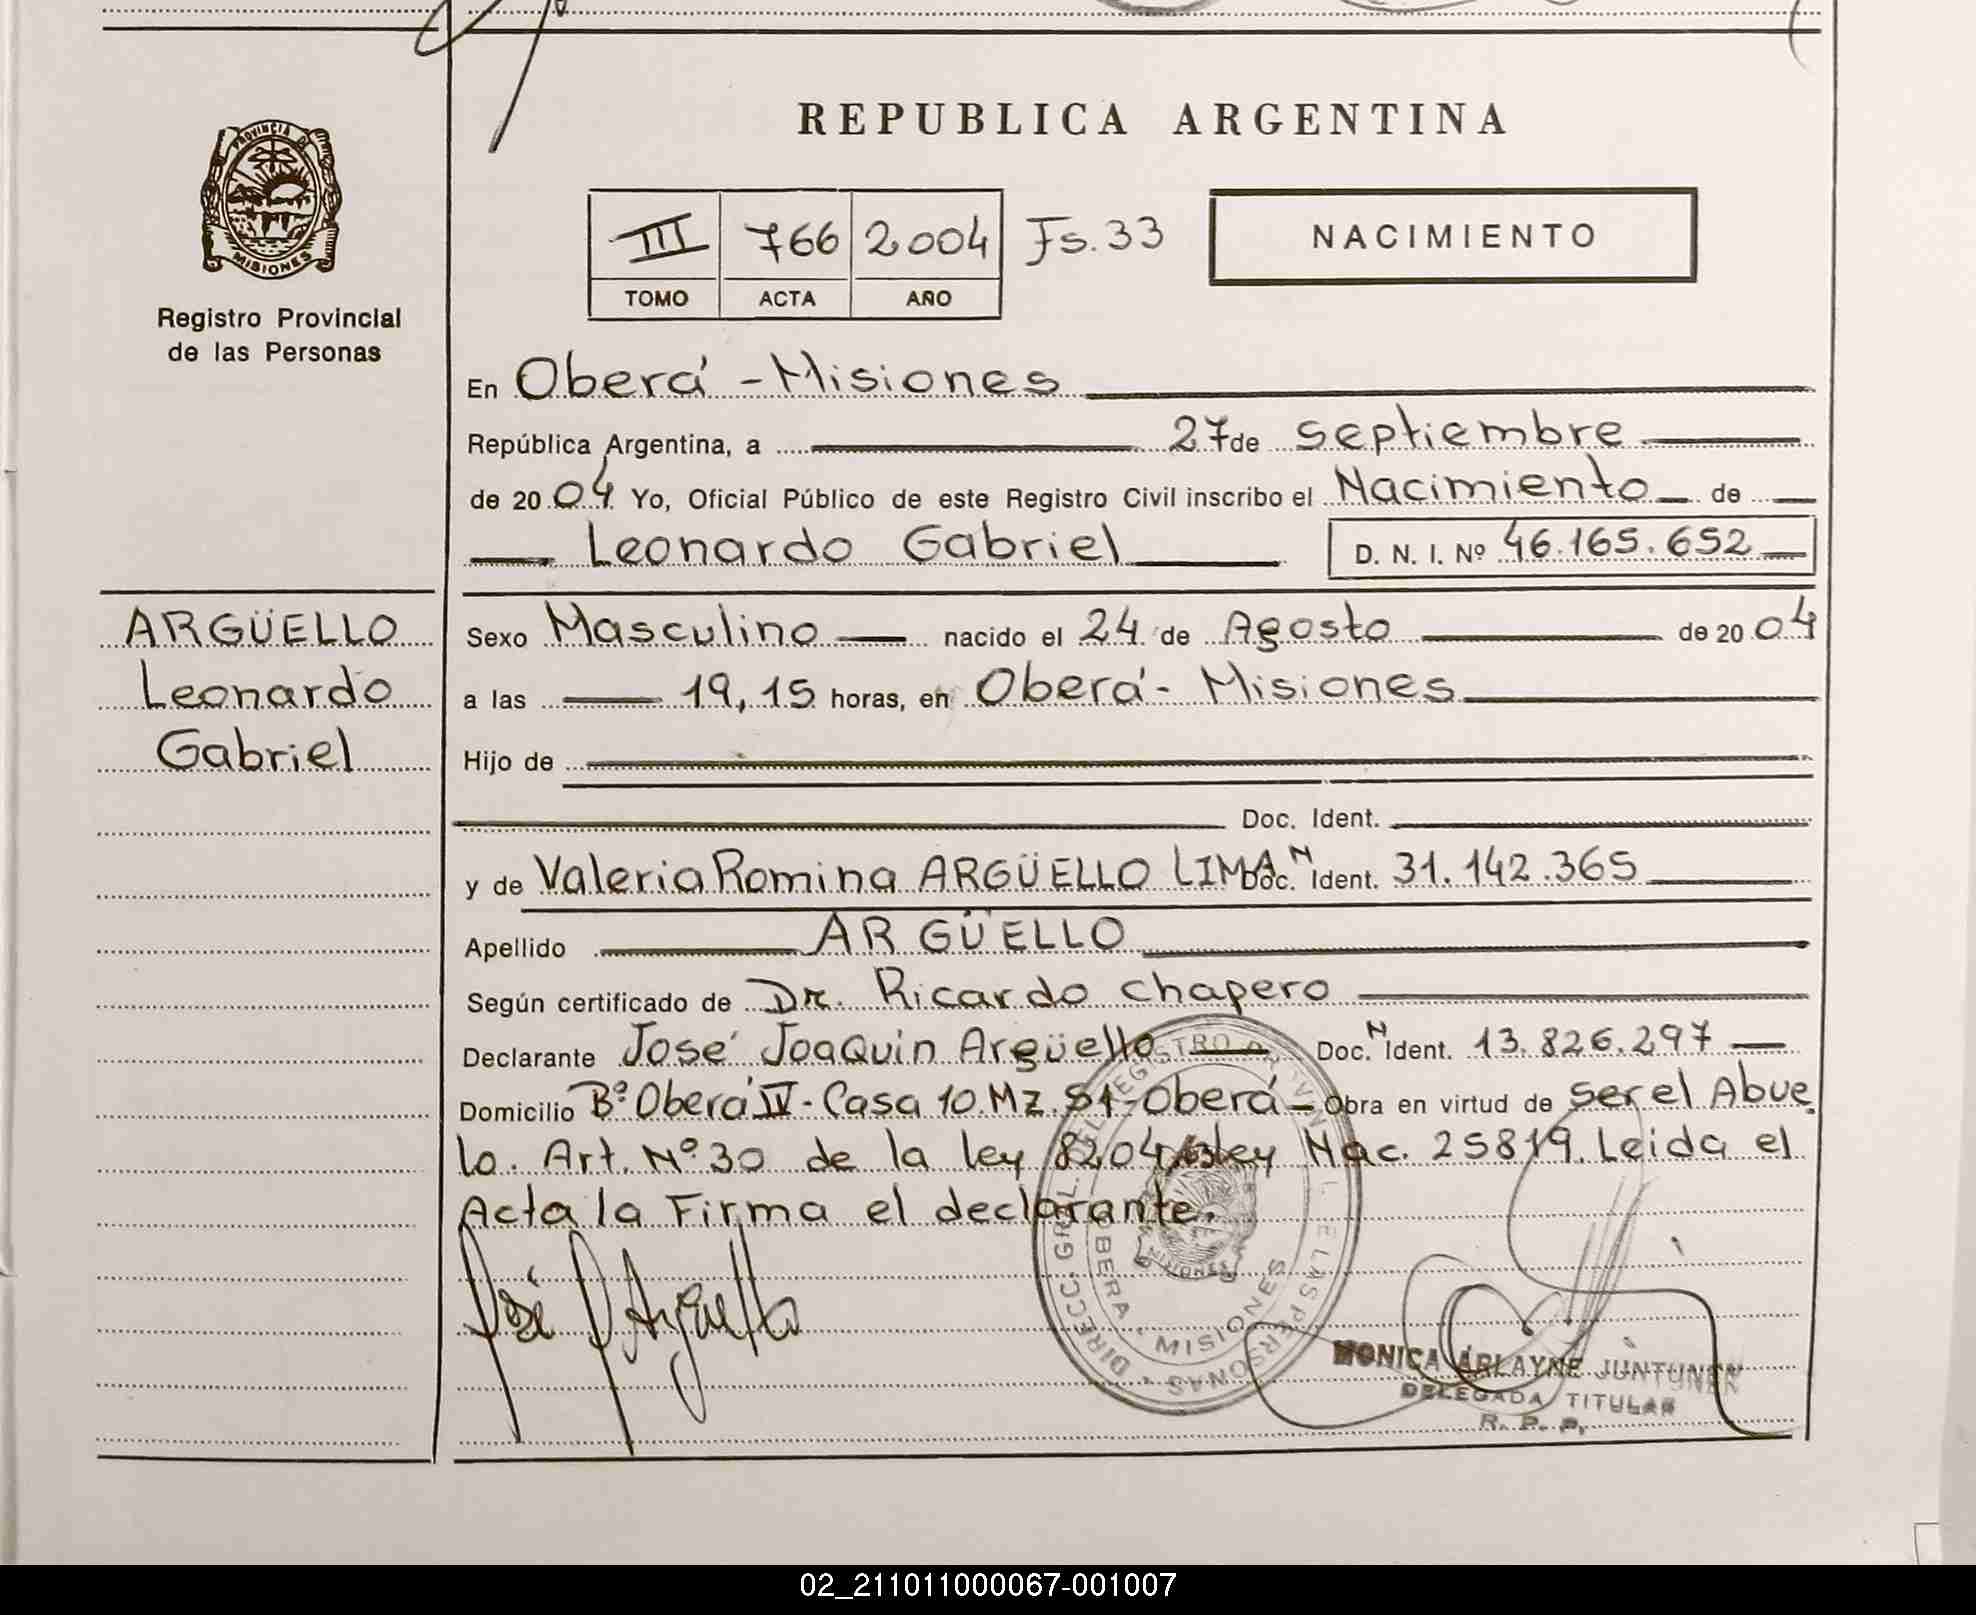 REPUBLICA ARGENTINA
PROVINCIA DE
MISIONES
Registro Provincial
de las Personas
III 766 2004 Fs. 33
TOMO ACTA AÑO
NACIMIENTO
En Oberá - Misiones
República Argentina, a 27 de septiembre
de 2004 Yo, Oficial Público de este Registro Civil inscribo el Nacimiento de
Leonardo Gabriel D. N. I. Nº 46.165.652
ARGÜELLO
Leonardo
Gabriel
Sexo Masculino nacido el 24 de Agosto de 2004
a las 19,15 horas, en Oberá - Misiones
Hijo de
Doc. Ident.
y de Valeria Romina ARGÜELLO LIMA Doc. N Ident. 31.142.365
Apellido ARGÜELLO
Según certificado de Dr. Ricardo Chapero
Declarante José Joaquin Argüello Doc. N Ident. 13.826.297
Domicilio Bº Oberá IV - Casa 10. Mz. S1 - Oberá - Obra en virtud de ser el Abue
lo. Art. Nº 30 de la ley 8204/63 ley Nac. 25819. Leida el
Acta la Firma el declarante.
José J Argüello
DIRECC. GRAL. DEL REGISTRO PROVINCIAL DE LAS PERSONAS
OBERA - MISIONES
MISIONES
MONICA ARLAYNE JUNTUNEN
DELEGADA TITULAR
R. P. P.
02_211011000067-001007